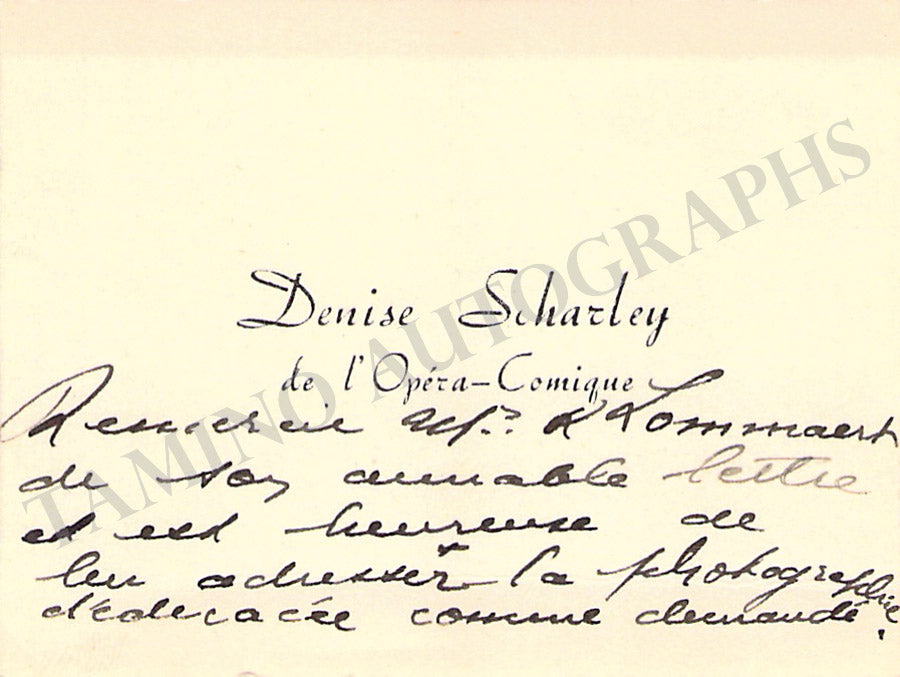 Denise Scharley
de l'Opéra-Comique
Remercie Mr. Lommaert
de son aimable lettre
et est heureuse de
lui adresser la photographie
dédicacée comme demandé.
TAMINO AUTOGRAPHS